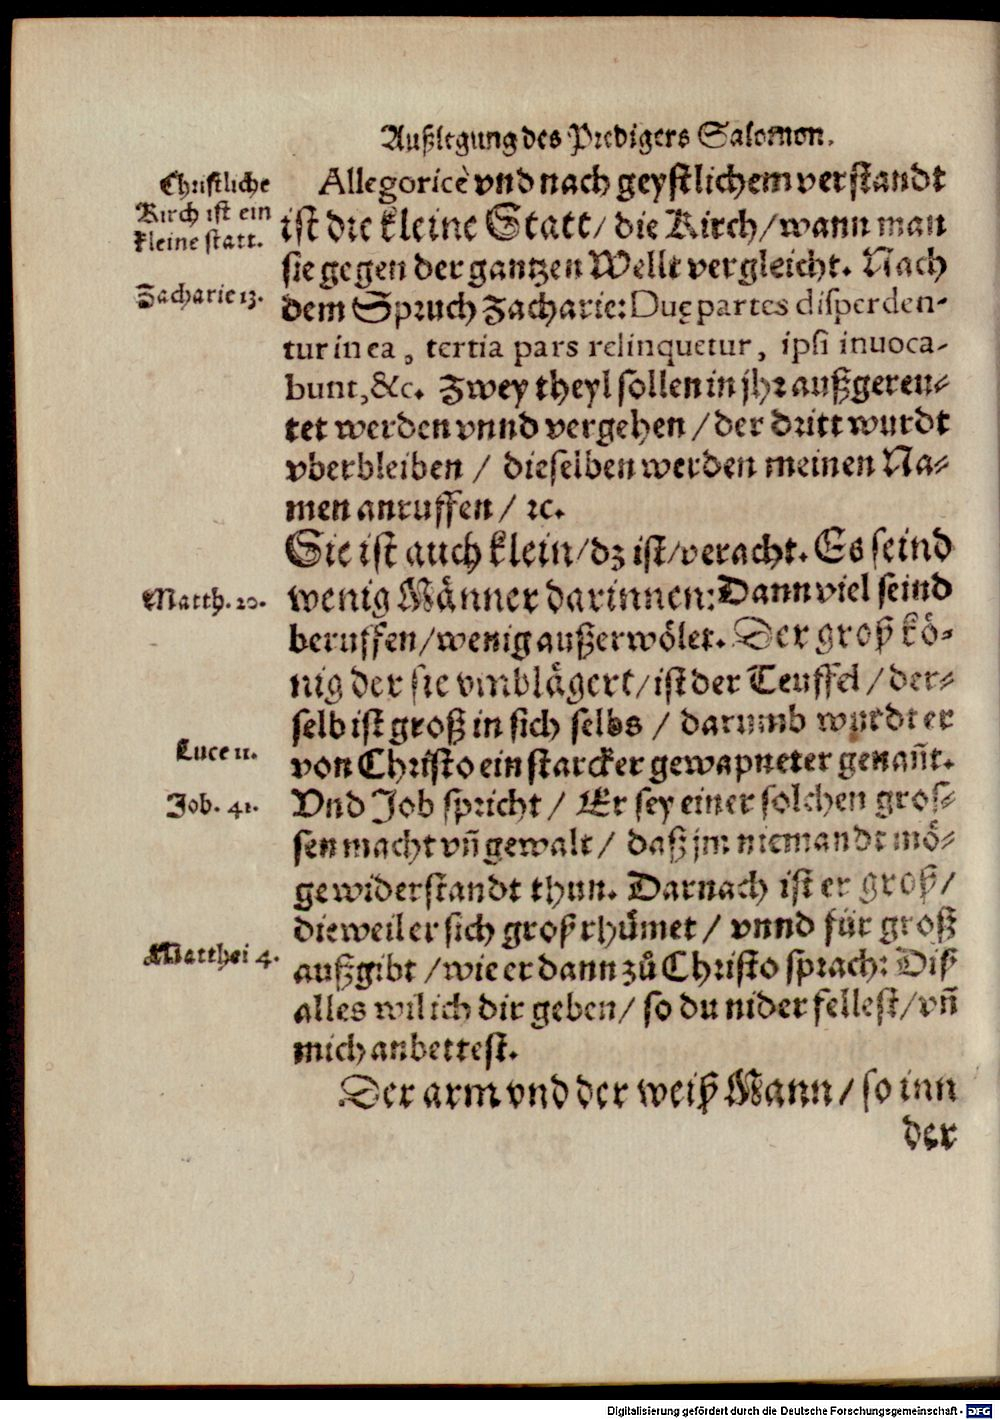 Außlegung des Predigers Salomon.
Christliche
Kirch ist ein
kleine statt.
Allegoricè vnd nach geystlichem verstandt
ist die kleine Statt/ die Kirch/ wann man
sie gegen der gantzen Wellt vergleicht. Nach
Zacharie 13.
dem Spruch Zacharie: Duę partes disperden-
tur in ea, tertia pars relinquetur, ipsi inuoca-
bunt, &c. Zwey theyl sollen in jhr außgereu-
tet werden vnnd vergehen / der dritt wurdt
vberbleiben / dieselben werden meinen Na-
men anruffen / ꝛc.
Sie ist auch klein/ dz ist/ veracht. Es seind
Matth. 20.
wenig Männer darinnen: Dann viel seind
beruffen/ wenig außerwölet. Der groß kö-
nig der sie vmblägert/ ist der Teuffel / der-
selb ist groß in sich selbs / darumb wurdt er
Luce 11.
von Christo ein starcker gewapneter genañt.
Job. 41.
Vnd Job spricht / Er sey einer solchen gros-
sen macht vñ gewalt / daß jm niemandt mö-
ge widerstandt thun. Darnach ist er groß/
dieweil er sich groß rhümet / vnnd für groß
Matthei 4.
außgibt / wie er dann zů Christo sprach: Diß
alles wil ich dir geben/ so du nider fellest/ vñ
mich anbettest.
Der arm vnd der weiß Mann / so inn
der
Digitalisierung gefördert durch die Deutsche Forschungsgemeinschaft - DFG